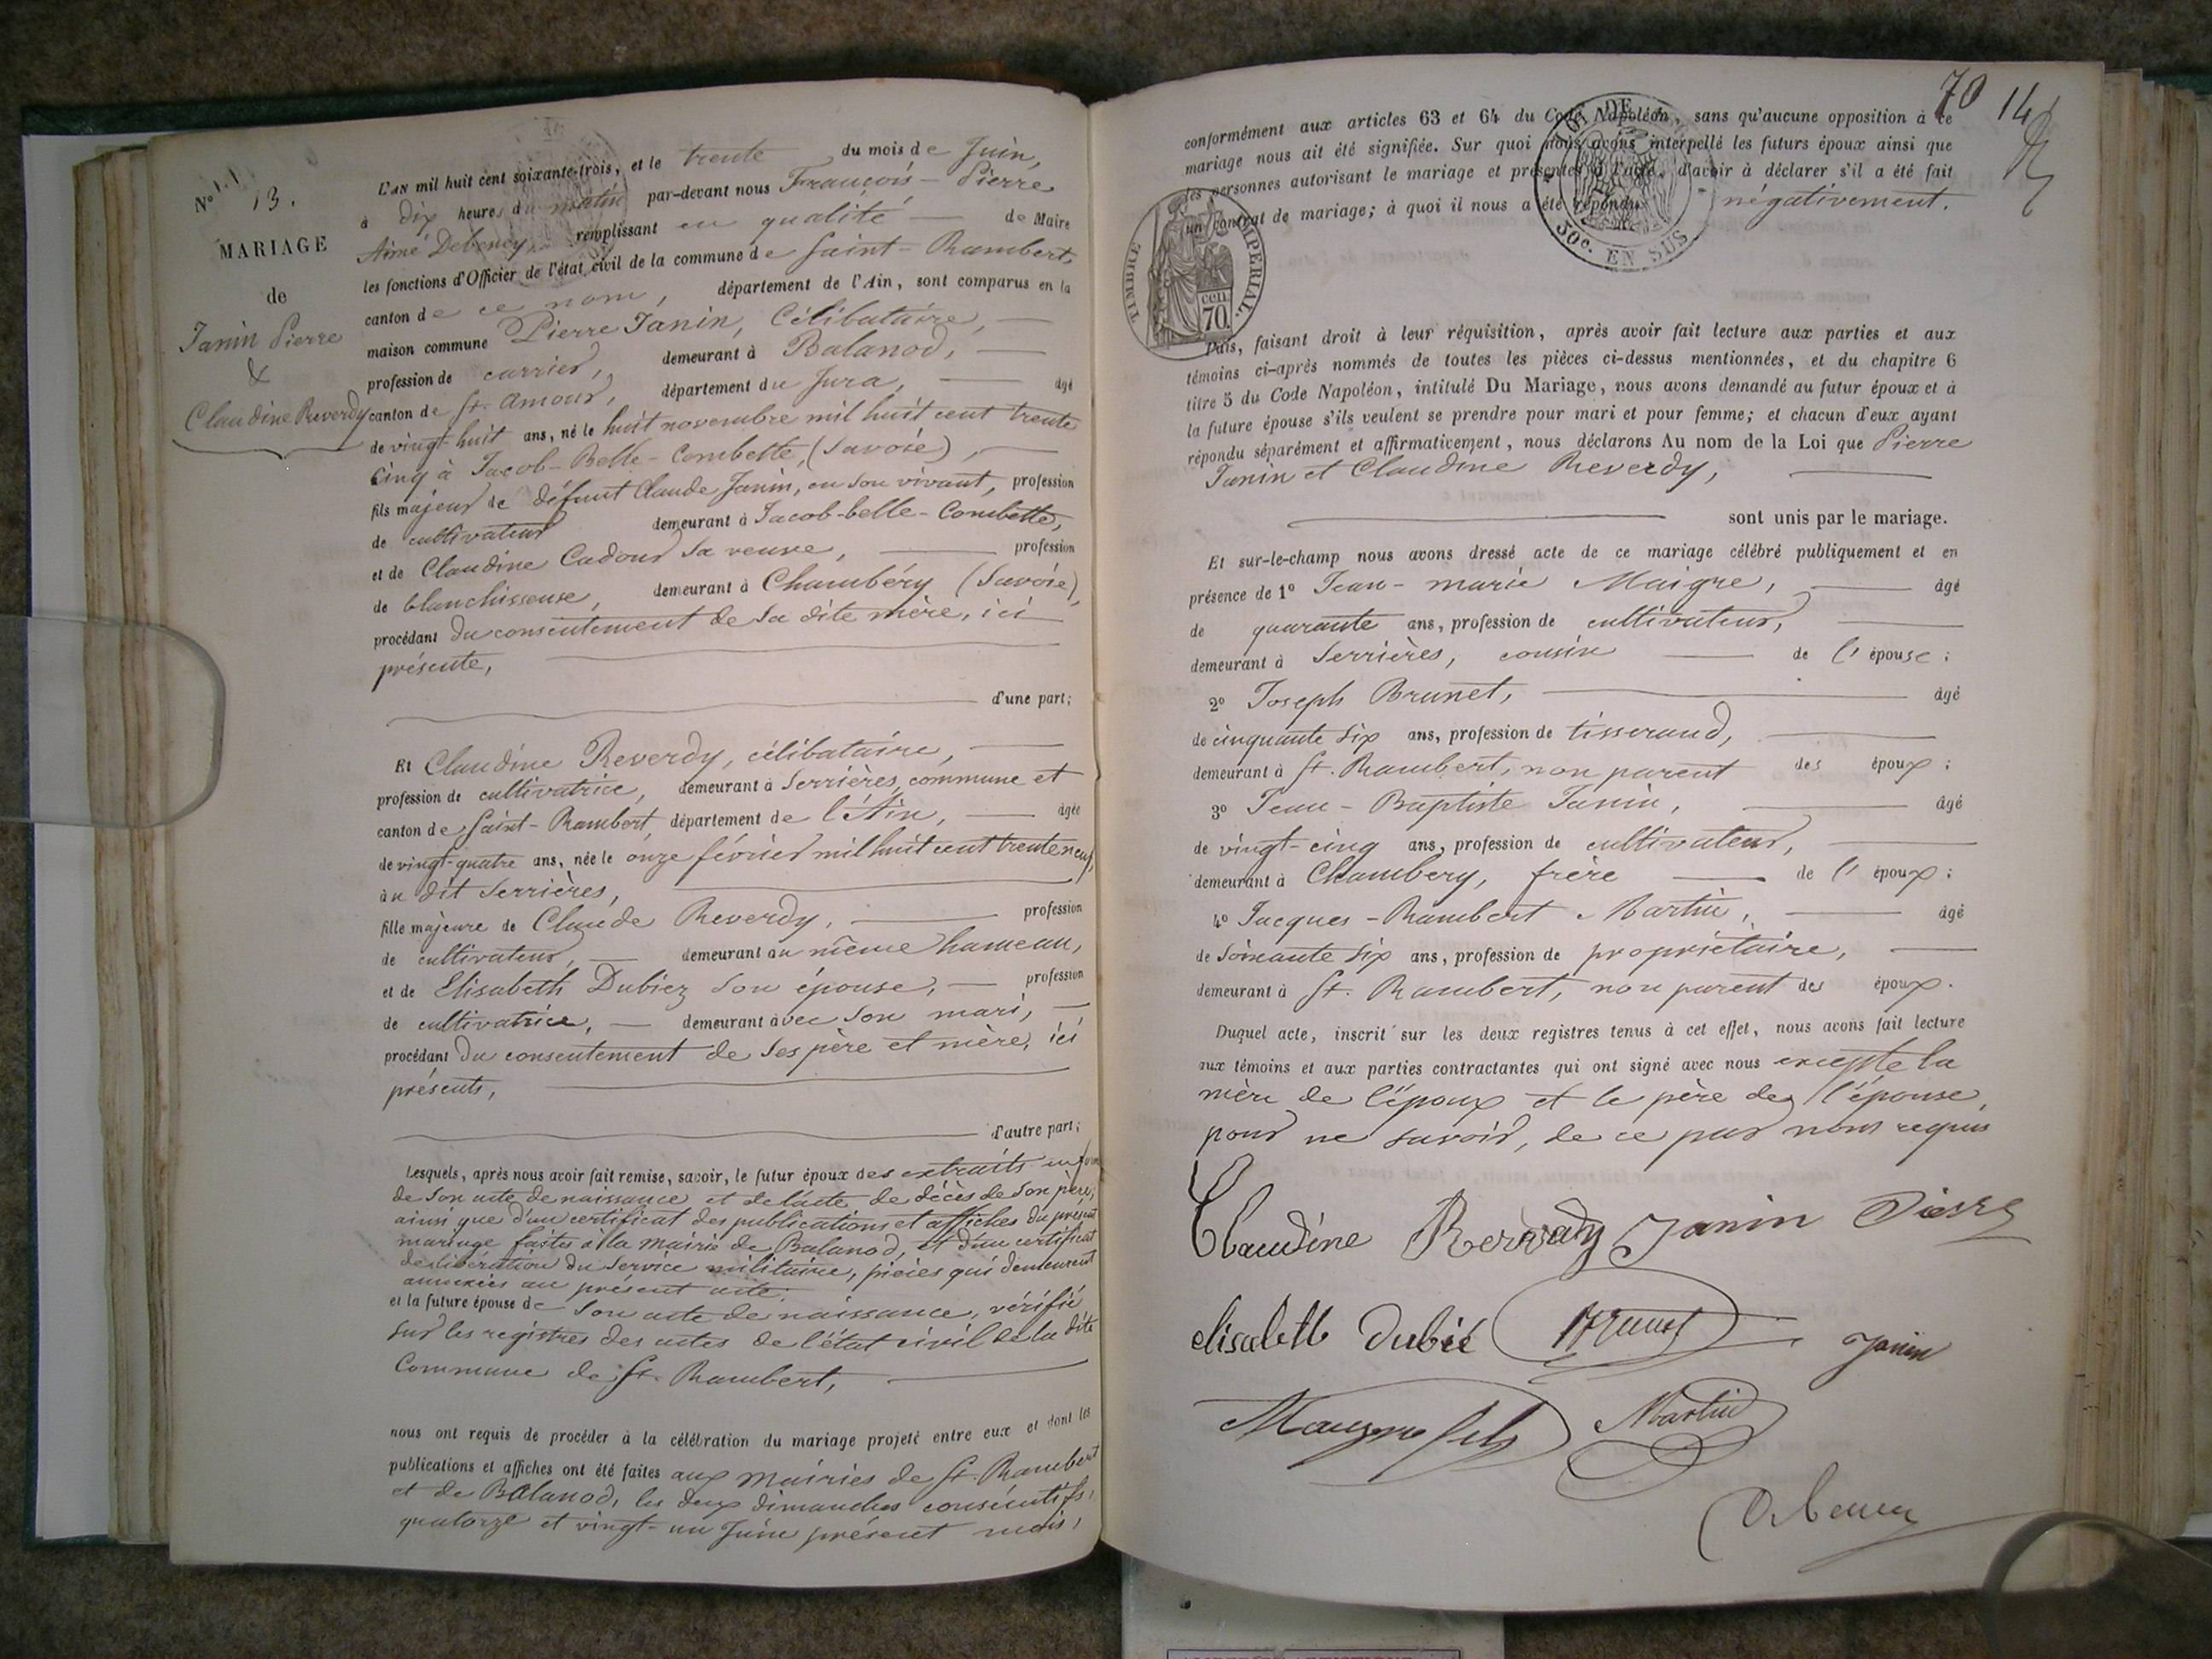 N° 13.
MARIAGE
de
Janin Pierre
&
Claudine Reverdy
L'AN mil huit cent soixante-trois, et le trente du mois de Juin,
à dix heures du matin par-devant nous François-Pierre
Aimé Debeney remplissant en qualité de Maire
les fonctions d'Officier de l'état civil de la commune de Saint-Rambert,
canton de ce nom, département de l'Ain, sont comparus en la
maison commune Pierre Janin, Célibataire,
profession de carrier, demeurant à Balanod,
canton de St. Amour, département du Jura, âgé
de vingt-huit ans, né le huit novembre mil huit cent trente
cinq à Jacob-Belle-Combette, (Savoie),
fils majeur de défunt Claude Janin, en son vivant, profession
de cultivateur demeurant à Jacob-belle-Combette,
et de Claudine Cadoux sa veuve, profession
de blanchisseuse, demeurant à Chambéry (Savoie),
procédant du consentement de sa dite mère, ici
présente,
d'une part;
Et Claudine Reverdy, célibataire,
profession de cultivatrice, demeurant à Serrières, commune et
canton de Saint-Rambert, département de l'Ain, âgée
de vingt-quatre ans, née le onze février mil huit cent trente neuf,
au dit Serrières,
fille majeure de Claude Reverdy, profession
de cultivateur, demeurant au même hameau,
et de Elisabeth Dubiez son épouse, profession
de cultivatrice, demeurant avec son mari,
procédant du consentement de ses père et mère, ici
présents,
d'autre part;
Lesquels, après nous avoir fait remise, savoir, le futur époux des extraits en forme
de son acte de naissance et de l'acte de décès de son père,
ainsi que d'un certificat des publications et affiches du présent
mariage faites à la mairie de Balanod, et d'un certificat
de libération du service militaire, pièces qui demeurent
annexées au présent acte;
et la future épouse de son acte de naissance, vérifié
sur les registres des actes de l'état civil de la dite
Commune de St. Rambert,
nous ont requis de procéder à la célébration du mariage projeté entre eux et dont les
publications et affiches ont été faites aux mairies de St. Rambert
et de Balanod, les deux dimanches consécutifs,
quatorze et vingt-un Juin présent mois,
70 14
conformément aux articles 63 et 64 du Code Napoléon, sans qu'aucune opposition à ce
mariage nous ait été signifiée. Sur quoi nous avons interpellé les futurs époux ainsi que
les personnes autorisant le mariage et présentes à l'acte, d'avoir à déclarer s'il a été fait
un contrat de mariage; à quoi il nous a été répondu négativement.
50c. EN SUS
TIMBRE IMPERIAL.
cen.
70.
Puis, faisant droit à leur réquisition, après avoir fait lecture aux parties et aux
témoins ci-après nommés de toutes les pièces ci-dessus mentionnées, et du chapitre 6
titre 5 du Code Napoléon, intitulé Du Mariage, nous avons demandé au futur époux et à
la future épouse s'ils veulent se prendre pour mari et pour femme; et chacun d'eux ayant
répondu séparément et affirmativement, nous déclarons Au nom de la Loi que Pierre
Janin et Claudine Reverdy,
sont unis par le mariage.
Et sur-le-champ nous avons dressé acte de ce mariage célébré publiquement et en
présence de 1° Jean-marie Maigre, âgé
de quarante ans, profession de cultivateur,
demeurant à Serrières, cousin de l'épouse;
2° Joseph Brunet, âgé
de cinquante six ans, profession de tisserand,
demeurant à St. Rambert, non parent des époux;
3° Jean-Baptiste Janin, âgé
de vingt-cinq ans, profession de cultivateur,
demeurant à Chambery, frère de l'époux;
4° Jacques-Rambert Martin, âgé
de soixante six ans, profession de propriétaire,
demeurant à St. Rambert, non parent des époux.
Duquel acte, inscrit sur les deux registres tenus à cet effet, nous avons fait lecture
aux témoins et aux parties contractantes qui ont signé avec nous excepté la
mère de l'époux et le père de l'épouse,
pour ne savoir, de ce par nous requis
Claudine Reverdy Janin Pierre
elisabeth dubié Brunet Janin
Martin